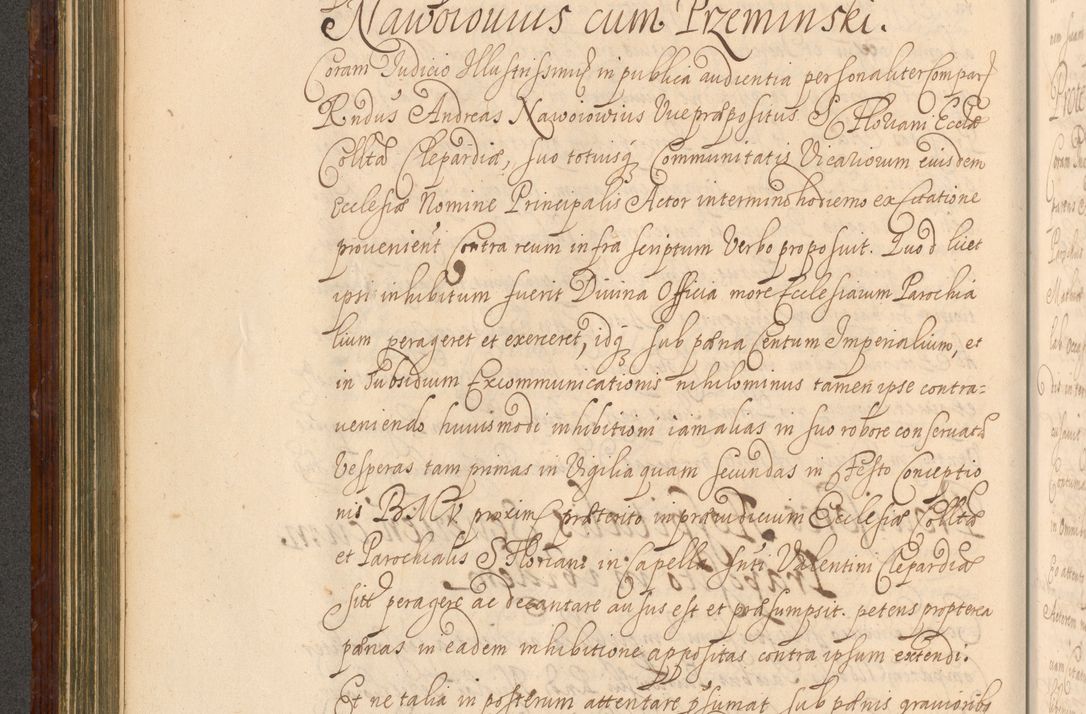 Nawoiovius cum Przeminski.
Coram Judicio Illustrissimi in publica audientia personaliter Compars
Rndus Andreas Nawoiowius Vicepræpositus S. Floriani Ecclæ
Collitæ Clepardiæ, suo totiusq Communitatis Vicariorum eiusdem
Ecclesiæ Nomine Principalis Actor in termino hodierno ex Citatione
provenient Contra reum infra scriptum Verbo proposuit. Quod licet
ipsi inhibitum fuerit Divina Officia more Ecclesiarum Parochia
lium perageret et exerceret, idq sub pæna Centum Imperialium, et
in Subsidium Excommunicationis nihilominus tamen ipse contra=
veniendo huiusmodi inhibitioni iam alias in suo robore conservatæ
Vesperas tam primas in Vigilia quam secundas in Festo Conceptio
nis B.M.V. proxime præterito in præiudicium Ecclesiæ Collitæ
et Parochialis S. Floriani in Capella Snti Valentini Clepardiæ
sitt peragere ac decantare ausus est et præsumpsit. petens propterea
pænas in eadem inhibitione appositas contra ipsum extendi.
Et ne talia in posterum attentare p̄sumat sub pænis gravioribs